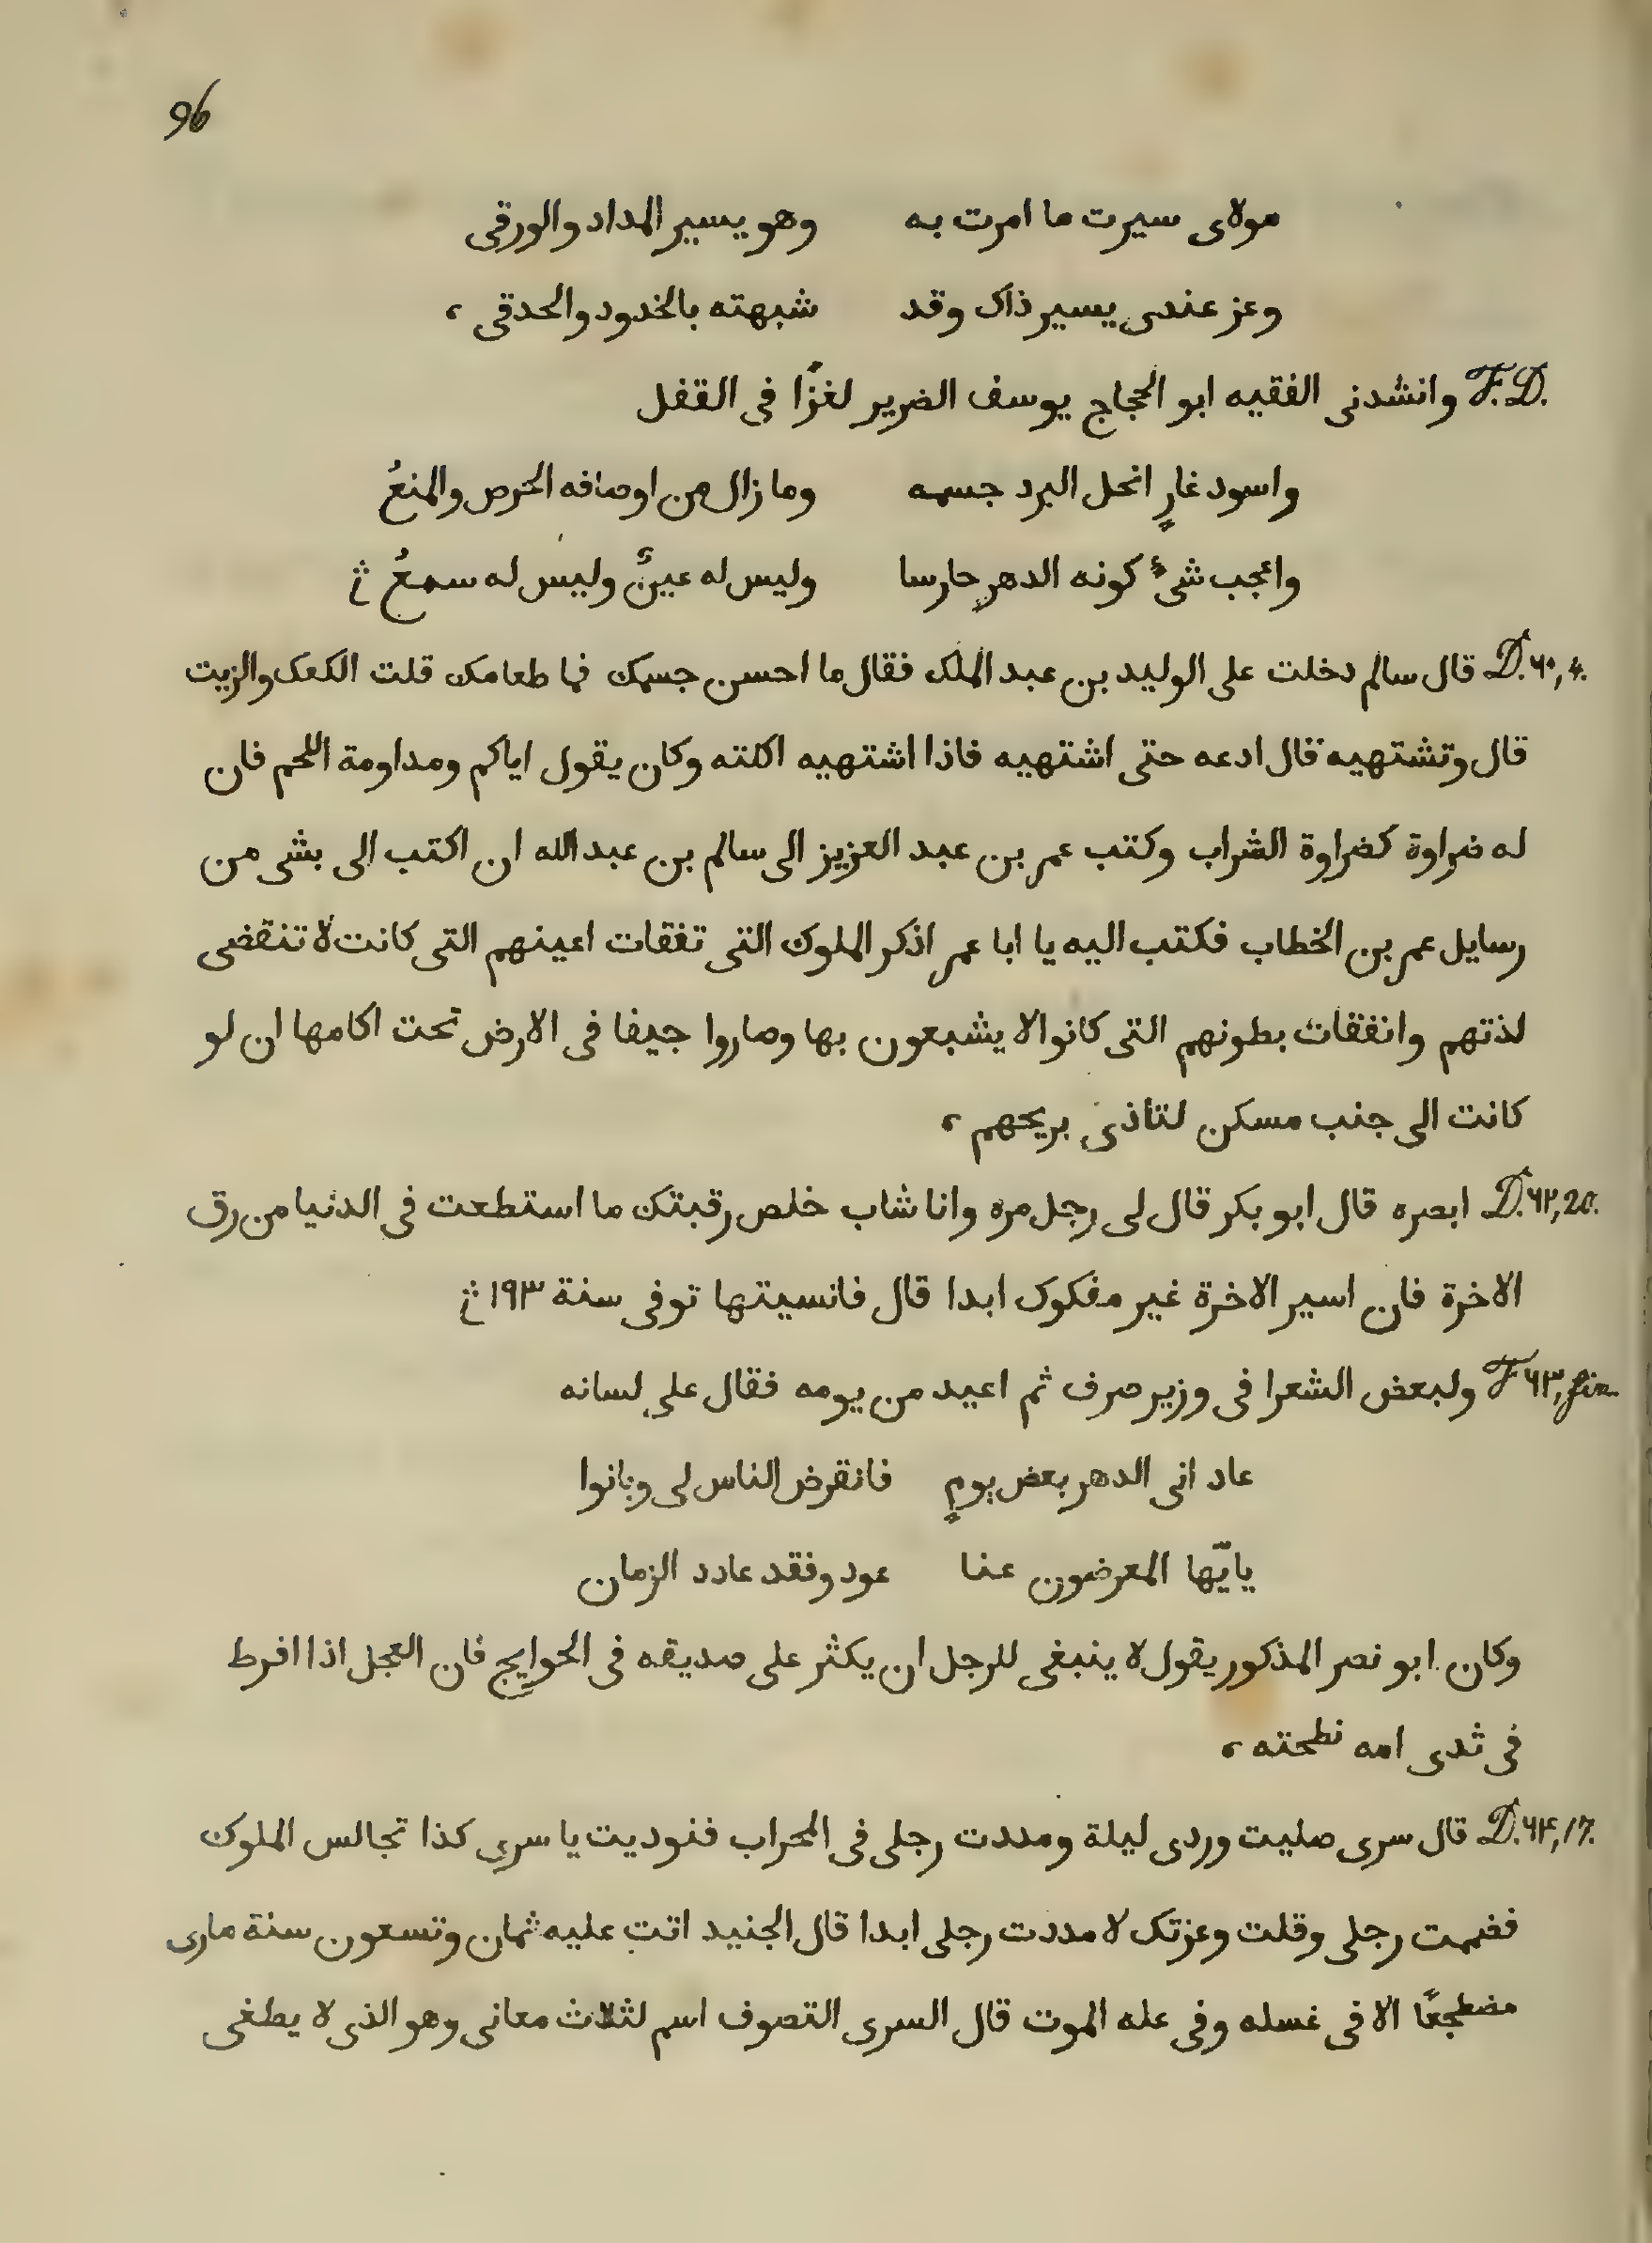 96
مولاى سيرت ما امرت به وهو يسير المداد والورقى
وعز عندى يسير ذاك وقد شبهته بالخدود والحدقى ،
F.D. وانشدنى الفقيه ابو الحجاج يوسف الضرير لغزًا فى القفل
واسود غارٍ انحل البرد جسمه وما زال من اوصافه الحرص والمنعُ
واعجب شىء كونه الدهر حارسا وليس له عينٌ وليس له سمعُ
D. ٦٠, 4. قال سالم دخلت على الوليد بن عبد الملك فقال ما احسن جسمك فما طعامك قلت الكعك والزيت
قال وتشتهيه قال ادعه حتى اشتهيه فاذا اشتهيه اكلته وكان يقول اياكم ومداومة اللحم فان
له ضراوة كضراوة الشراب وكتب عمر بن عبد العزيز الى سالم بن عبد الله ان اكتب الى بشى من
رسايل عمر بن الخطاب فكتب اليه يا ابا عمر اذكر الملوك التى تفقات اعينهم التى كانت لا تنقضى
لذتهم وانفقات بطونهم التى كانوا لا يشبعون بها وصاروا جيفا فى الارض تحت اكامها ان لو
كانت الى جنب مسكن لتاذى بريحهم ،
D. ٦٢, 20. ابصره قال ابو بكر قال لى رجل مره وانا شاب خلص رقبتك ما استطعت فى الدنيا من رق
الاخرة فان اسير الاخرة غير مفكوك ابدا قال فانسيتها توفى سنة ١٩٣
F ٦٣, fin. ولبعض الشعرا فى وزير صرف ثم اعيد من يومه فقال على لسانه
عاد انى الدهر بعض يومٍ فانقرض الناس لى وبانوا
يايّها المعرضون عنا عود وفقد عادد الزمان
وكان ابو نصر المذكور يقول لا ينبغى للرجل ان يكثر على صديقه فى الحوايج فان العجل اذا افرط
فى ثدى امه نطحته ،
D. ٦٤, 17. قال سرى صليت وردى ليلة ومددت رجلى فى المحراب فنوديت يا سرى كذا تجالس الملوك
فضممت رجلى وقلت وعزتك لا مددت رجلى ابدا قال الجنيد اتت عليه ثمان وتسعون سنة مارى
مضطجعًا الا فى غسله وفى عله الموت قال السرى التصوف اسم لثلاث معانى وهو الذى لا يطغى